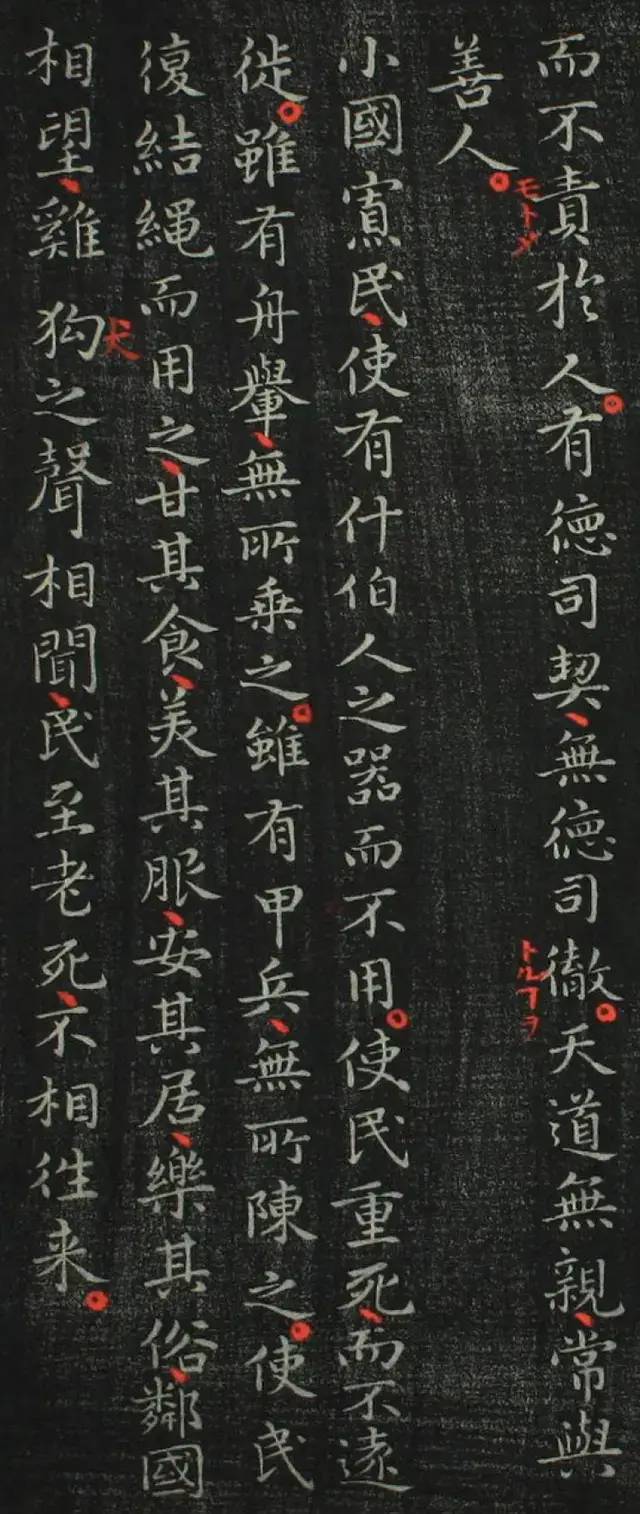 而不責於人。有德司契、無德司徹。天道無親、常與
モトメ
トルコヲ
善人。
小國寡民、使有什伯人之器而不用。使民重死、而不遠
徙。雖有舟轝、無所乗之。雖有甲兵、無所陳之。使民
復結繩而用之、甘其食、美其服、安其居、樂其俗、鄰國
相望、雞狗之聲相聞、民至老死、不相往来。
犬